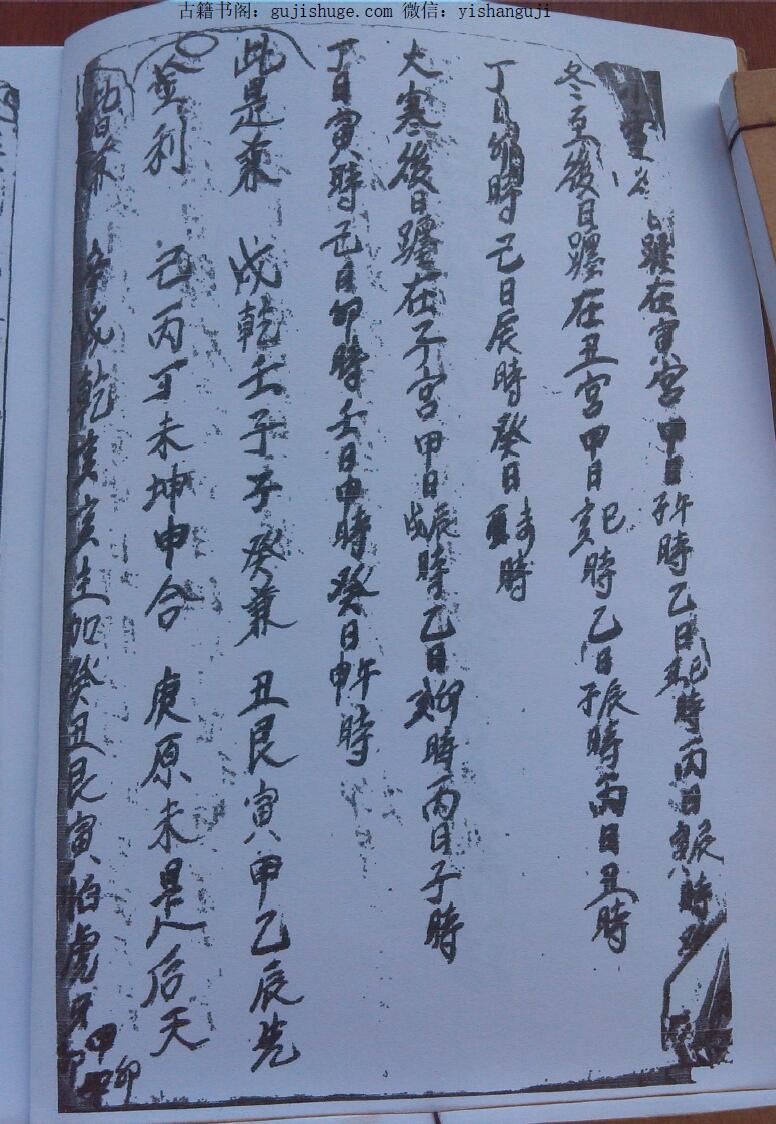 古籍书阁：gujishuge.com 微信：yishanguji
躔在寅宮甲日子午時乙日丑巳時丙日寅辰時
冬至後日躔在丑宮甲日亥巳時乙日子辰時丙日丑時
丁日卯時己日辰時癸日未時
大寒後日躔在子宮甲日戌辰時乙日亥卯時丙日子時
丁日寅時己日卯時壬日申時癸日申午時
此是兼 戌乾壬子子癸兼 丑艮寅甲乙辰先
並利 己丙丁未坤申合 庚原未是后天
戌乾 亥生加癸丑艮寅怕虎 甲卯